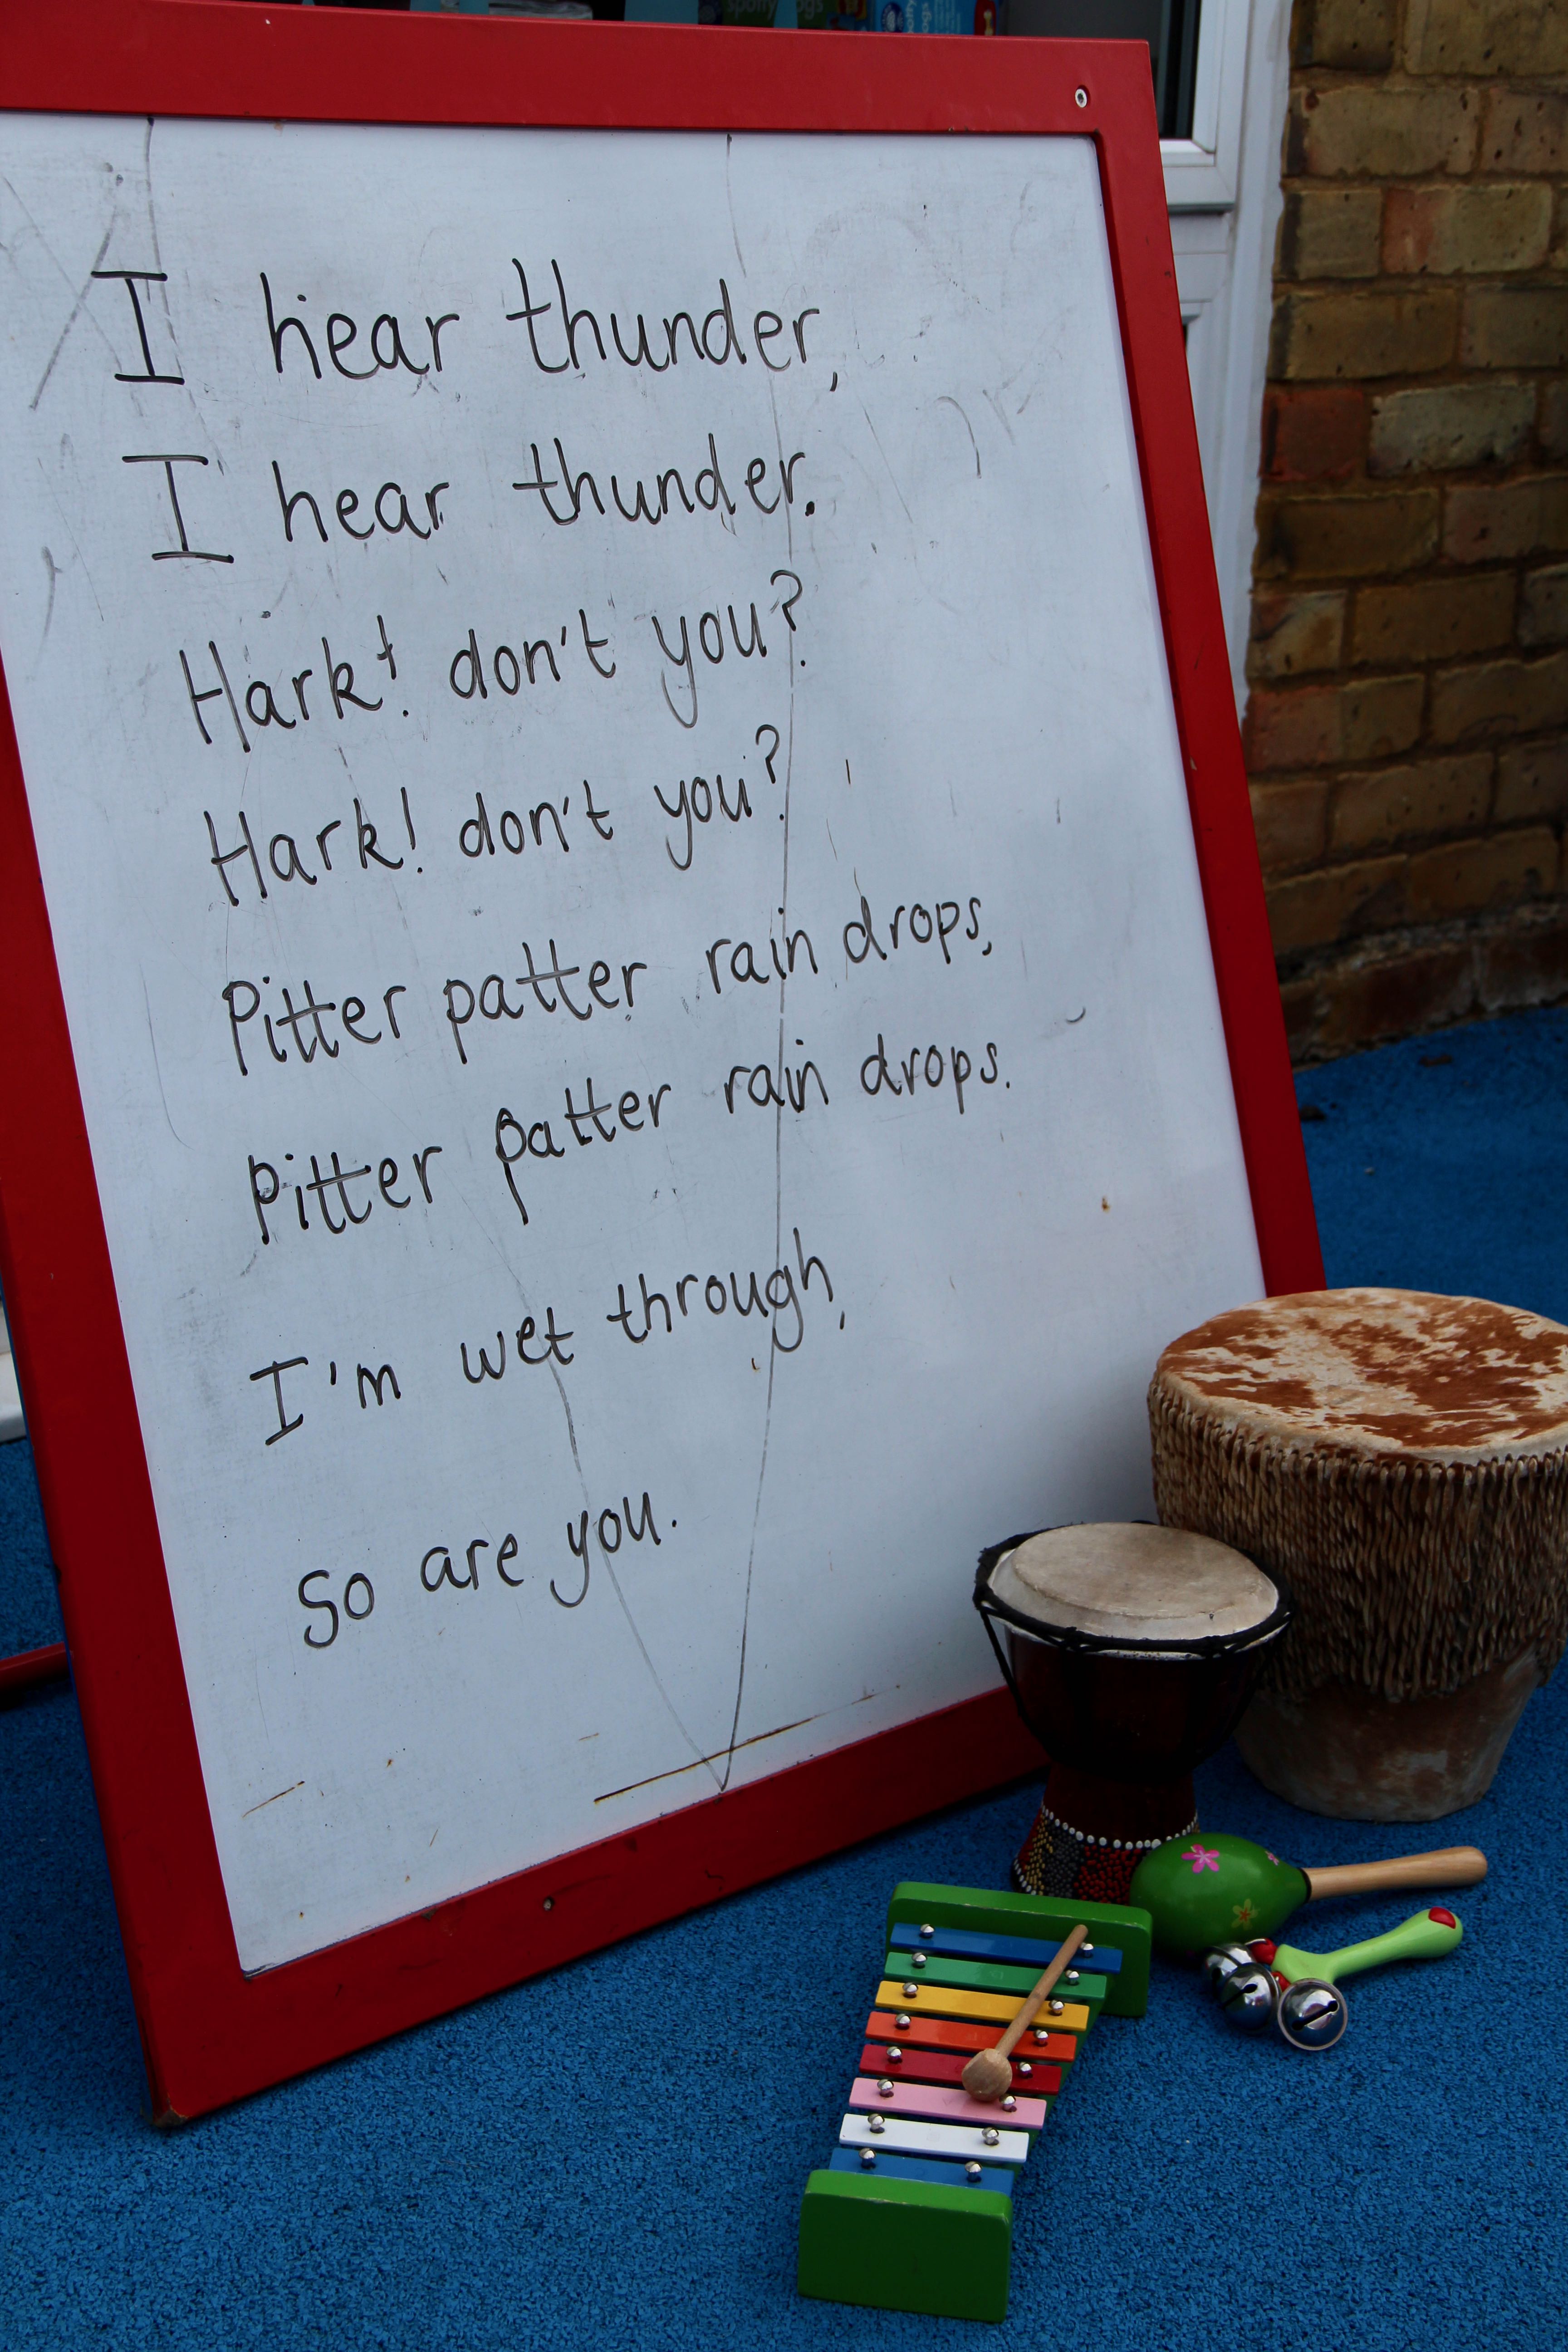 I hear thunder,
I hear thunder.
Hark! don't you?
Hark! don't you?
Pitter patter rain drops,
Pitter patter rain drops.
I'm wet through,
So are you.